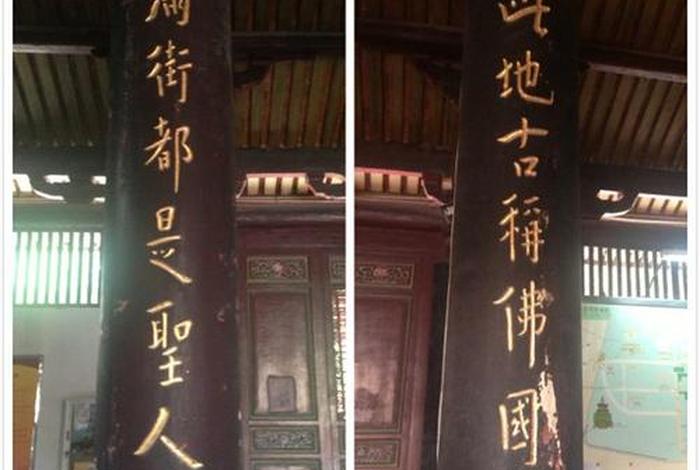 此地古稱佛國
滿街都是聖人